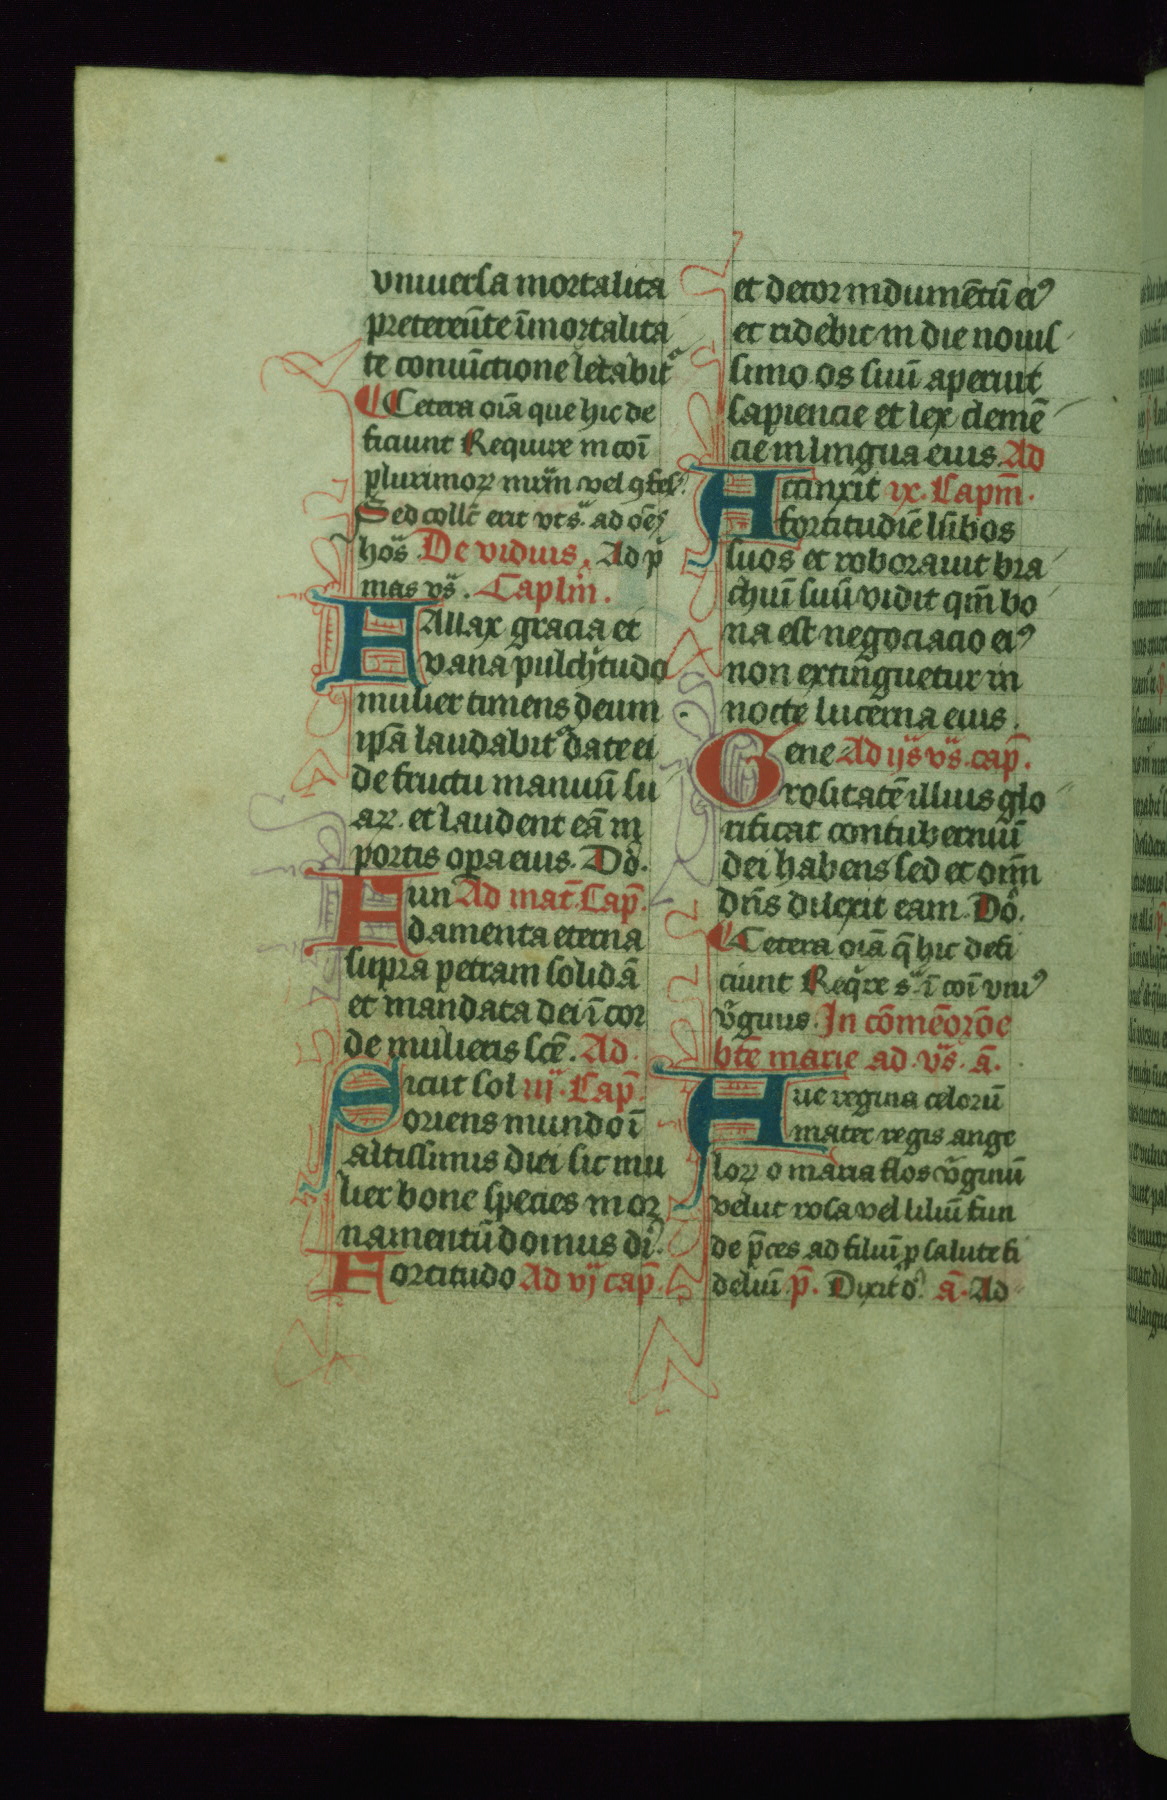 vniuersa mortalita
pretereũte ĩmortalita
te conuĩctione letabit
Cetera oĩa que hic de
ficiunt Require in coĩ
plurimoꝝ mr̃im vel ꝯfes.
Sed collc̃ erit vts᷑ ad oẽs
hos. De viduis. Ad p̾
mas vs̾. Caplm̃.
FAllax gracia et
vana pulchͥtudo
mulier timens deum
ipã laudabit᷑ date ei
de fructu manuũ su
aꝝ. et laudent eã in
portis oꝑa eius. Dõ.
Fun Ad mat̃. Cap̃.
damenta eterna
supra petram solidã
et mandata dei ĩ cor
de mulieris sc̃e. Ad
Sicut sol iij. Cap̃.
oriens mundo ĩ
altissimis diei sic mu
lier bone species in or
namentũ domus ei᷒.
Fortitudo Ad vj cap̃.
et decor indumẽtũ ei᷒
et ridebit in die nouis
simo os suũ aperuit
sapiencie et lex clemẽ
cie in lingua eius. Ad
Accinxit ix. Capm̃.
fortitudiẽ lũbos
suos et roborauit bra
chiũ suũ vidit qm̃ bo
na est negociacio ei᷒
non extinguetur in
nocte lucerna eius.
Gene Ad ijs vs̾. cap̃.
rositatẽ illius glo
rificat contuberniũ
dei habens sed et om̃
dñs dilexit eam. Dõ.
Cetera oĩa q̃ hic defi
ciunt Reqͥre s᷑ ĩ coĩ vni᷒
v̾ginis. In cõmẽorõe
bt̃e marie ad. vs̾. ã.
Aue regina celorũ
mater regis ange
loꝝ o maria flos v̾ginũ
velut rosa vel liliũ fun
de p̃ces ad filiũ ꝓ salute fi
deliũ. p̃. Dixit d᷒. ã. Ad